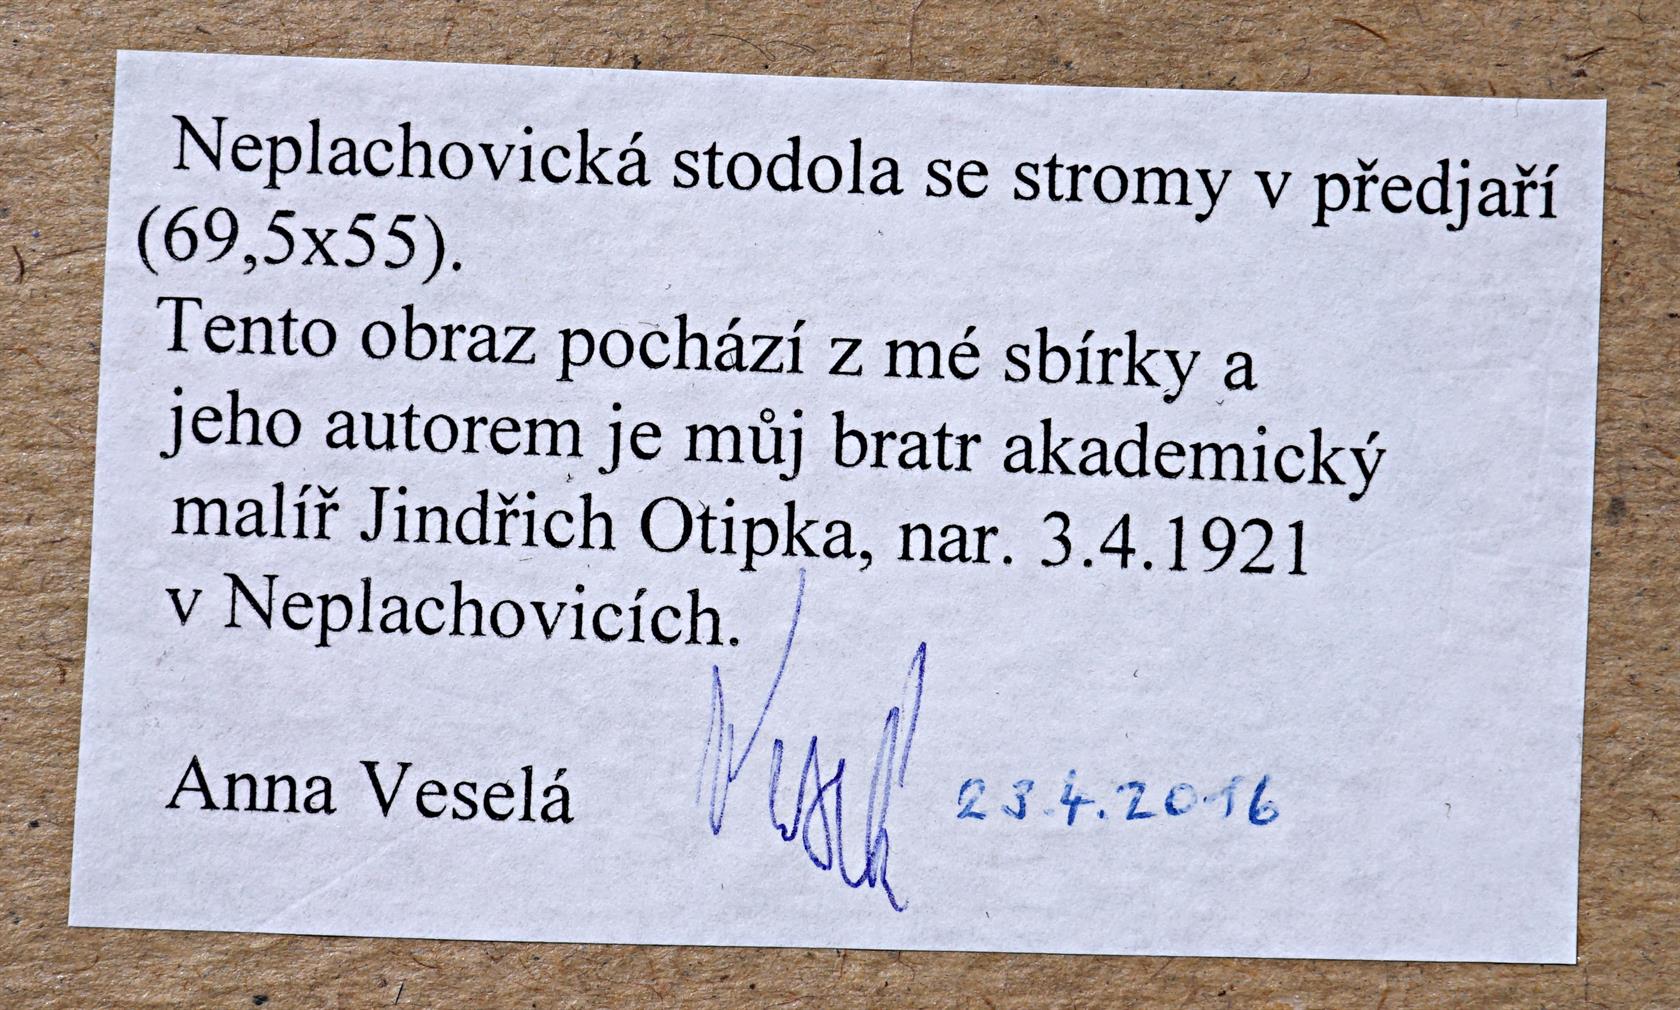 Neplachovická stodola se stromy v předjaří
(69,5x55).
Tento obraz pochází z mé sbírky a
jeho autorem je můj bratr akademický
malíř Jindřich Otipka, nar. 3.4.1921
v Neplachovicích.
Anna Veselá Veselá 23.4.2016